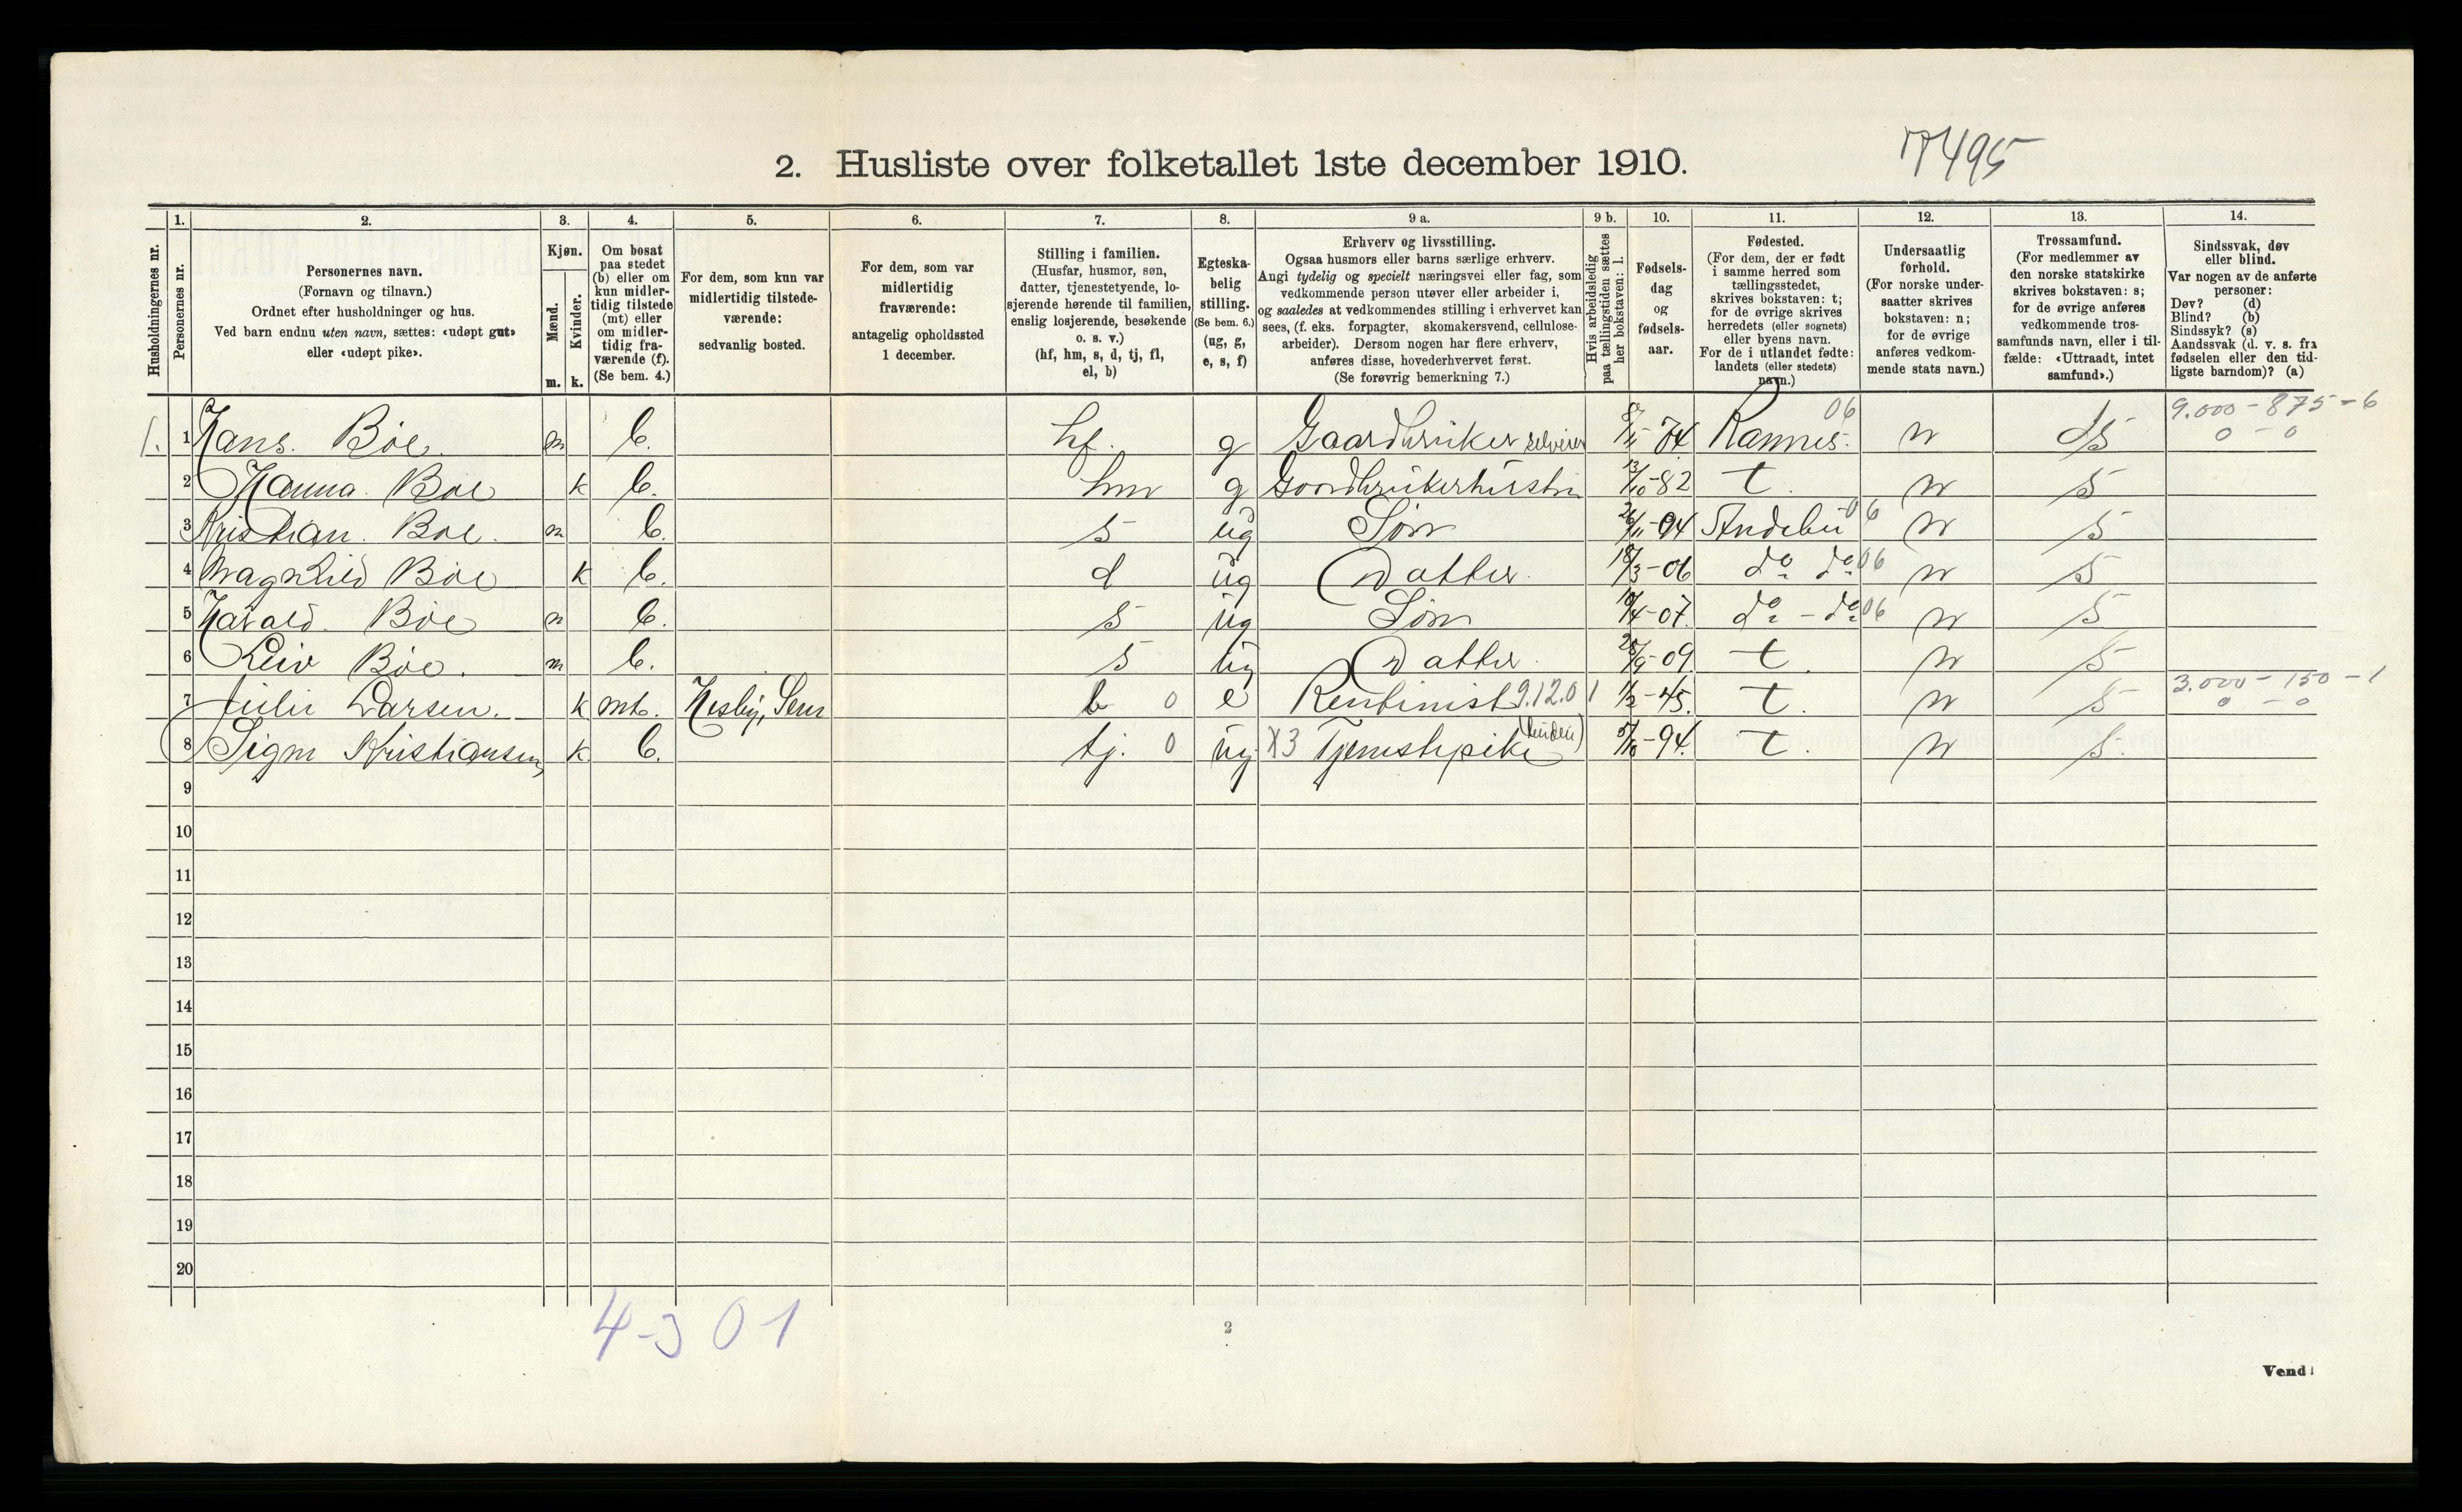 2. Husliste over folketallet 1ste december 1910.
7495
Husholdningernes nr.
1. Personernes nr.
2. Personernes navn.
(Fornavn og tilnavn.)
Ordnet efter husholdninger og hus.
Ved barn endnu uten navn, sættes: «udøpt gut»
eller «udøpt pike».
3. Kjøn.
Mænd. m.
Kvinder. k.
4. Om bosat
paa stedet
(b) eller om
kun midler-
tidig tilstede
(mt) eller
om midler-
tidig fra-
værende (f).
(Se bem. 4.)
5. For dem, som kun var
midlertidig tilstede-
værende:
sedvanlig bosted.
6. For dem, som var
midlertidig
fraværende:
antagelig opholdssted
1 december.
7. Stilling i familien.
(Husfar, husmor, søn,
datter, tjenestetyende, lo-
sjerende hørende til familien,
enslig losjerende, besøkende
o. s. v.)
(hf, hm, s, d, tj, fl,
el, b)
8. Egteska-
belig
stilling.
(Se bem. 6.)
(ug, g,
e, s, f)
9 a. Erhverv og livsstilling.
Ogsaa husmors eller barns særlige erhverv.
Angi tydelig og specielt næringsvei eller fag, som
vedkommende person utøver eller arbeider i,
og saaledes at vedkommendes stilling i erhvervet kan
sees, (f. eks. forpagter, skomakersvend, cellulose-
arbeider). Dersom nogen har flere erhverv,
anføres disse, hovederhvervet først.
(Se forøvrig bemerkning 7.)
9 b. Hvis arbeidsledig
paa tællingstiden sættes
her bokstaven: l.
10. Fødsels-
dag
og
fødsels-
aar.
11. Fødested.
(For dem, der er født
i samme herred som
tællingsstedet,
skrives bokstaven: t;
for de øvrige skrives
herredets (eller sognets)
eller byens navn.
For de i utlandet fødte:
landets (eller stedets)
navn.)
12. Undersaatlig
forhold.
(For norske under-
saatter skrives
bokstaven: n;
for de øvrige
anføres vedkom-
mende stats navn.)
13. Trossamfund.
(For medlemmer av
den norske statskirke
skrives bokstaven: s;
for de øvrige anføres
vedkommende tros-
samfunds navn, eller i til-
fælde: «Uttraadt, intet
samfund».)
14. Sindssvak, døv
eller blind.
Var nogen av de anførte
personer:
Døv? (d)
Blind? (b)
Sindssyk? (s)
Aandssvak (d. v. s. fra
fødselen eller den tid-
ligste barndom)? (a)
9.000 - 875 - 6
0 - 0
1. 1 Hans Böe m b. hf. g Gaardbruker selveier 8/11-74 Ramnes 06 n s
2 Hanna Boe k b. hm g Gaardbrukerhustru 13/10-82 t. n s
3 Kristian Boe. m b. s ug Søn 26/11-04 Andebu 06 n s
4 Magnhild Böe k b. d ug Datter 18/3-06 do do 06 n s
5 Harald Böe m b. s ug Søn 10/4-07 do - do 06 n s
6 Leiv Böe. m b. s ug Datter 28/9-09 t. n s
3.000 - 150 - 1
0 - 0
7 Julie Larsen. k mt. Nesby, Sem b 0 e Rentinist 9.12.01 1/2-45. t. n s
8 Signe Kristiansen k b. tj. 0 ug X3 Tjenestepike (inden) 5/10-94. t. n s.
9
10
11
12
13
14
15
16
17
18
19
20
4-3 0 1
2
Vend!